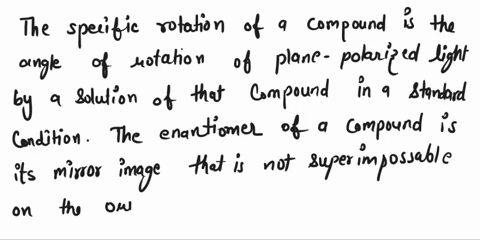 The specific rotation of a compound is the
angle of rotation of plane-polarized light
by a solution of that Compound in a Standard
Condition. The enantiomer of a compound is
its mirror image that is not superimpossable
on the ow